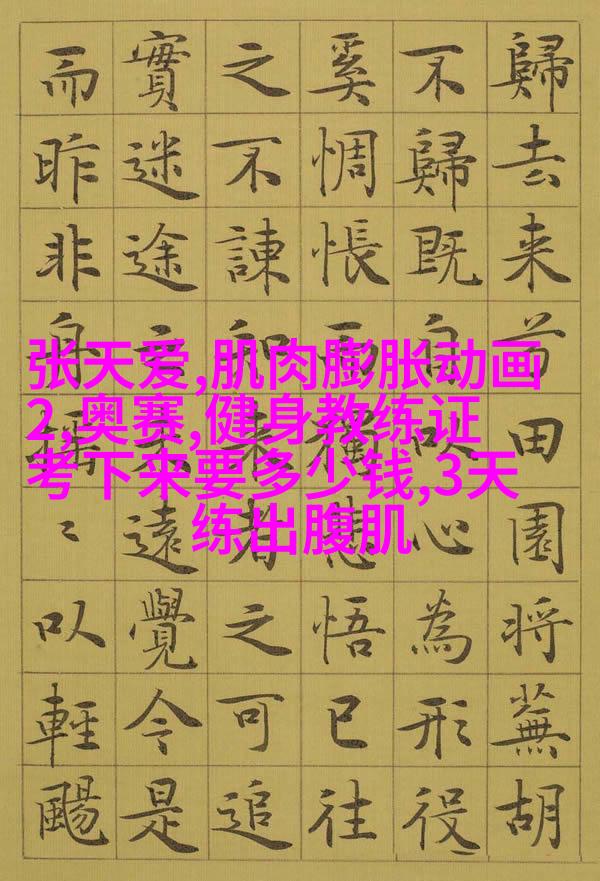 歸去来兮田園将蕪胡
不歸既自以心為形役
奚惆悵而獨悲悟已往
之不諫知来者之可追
實迷途其未遠覺今是
而昨非舟摇〻以輕颺
张天爱,肌肉膨胀动画
2,奥赛,健身教练证
考下来要多少钱,3天
练出腹肌